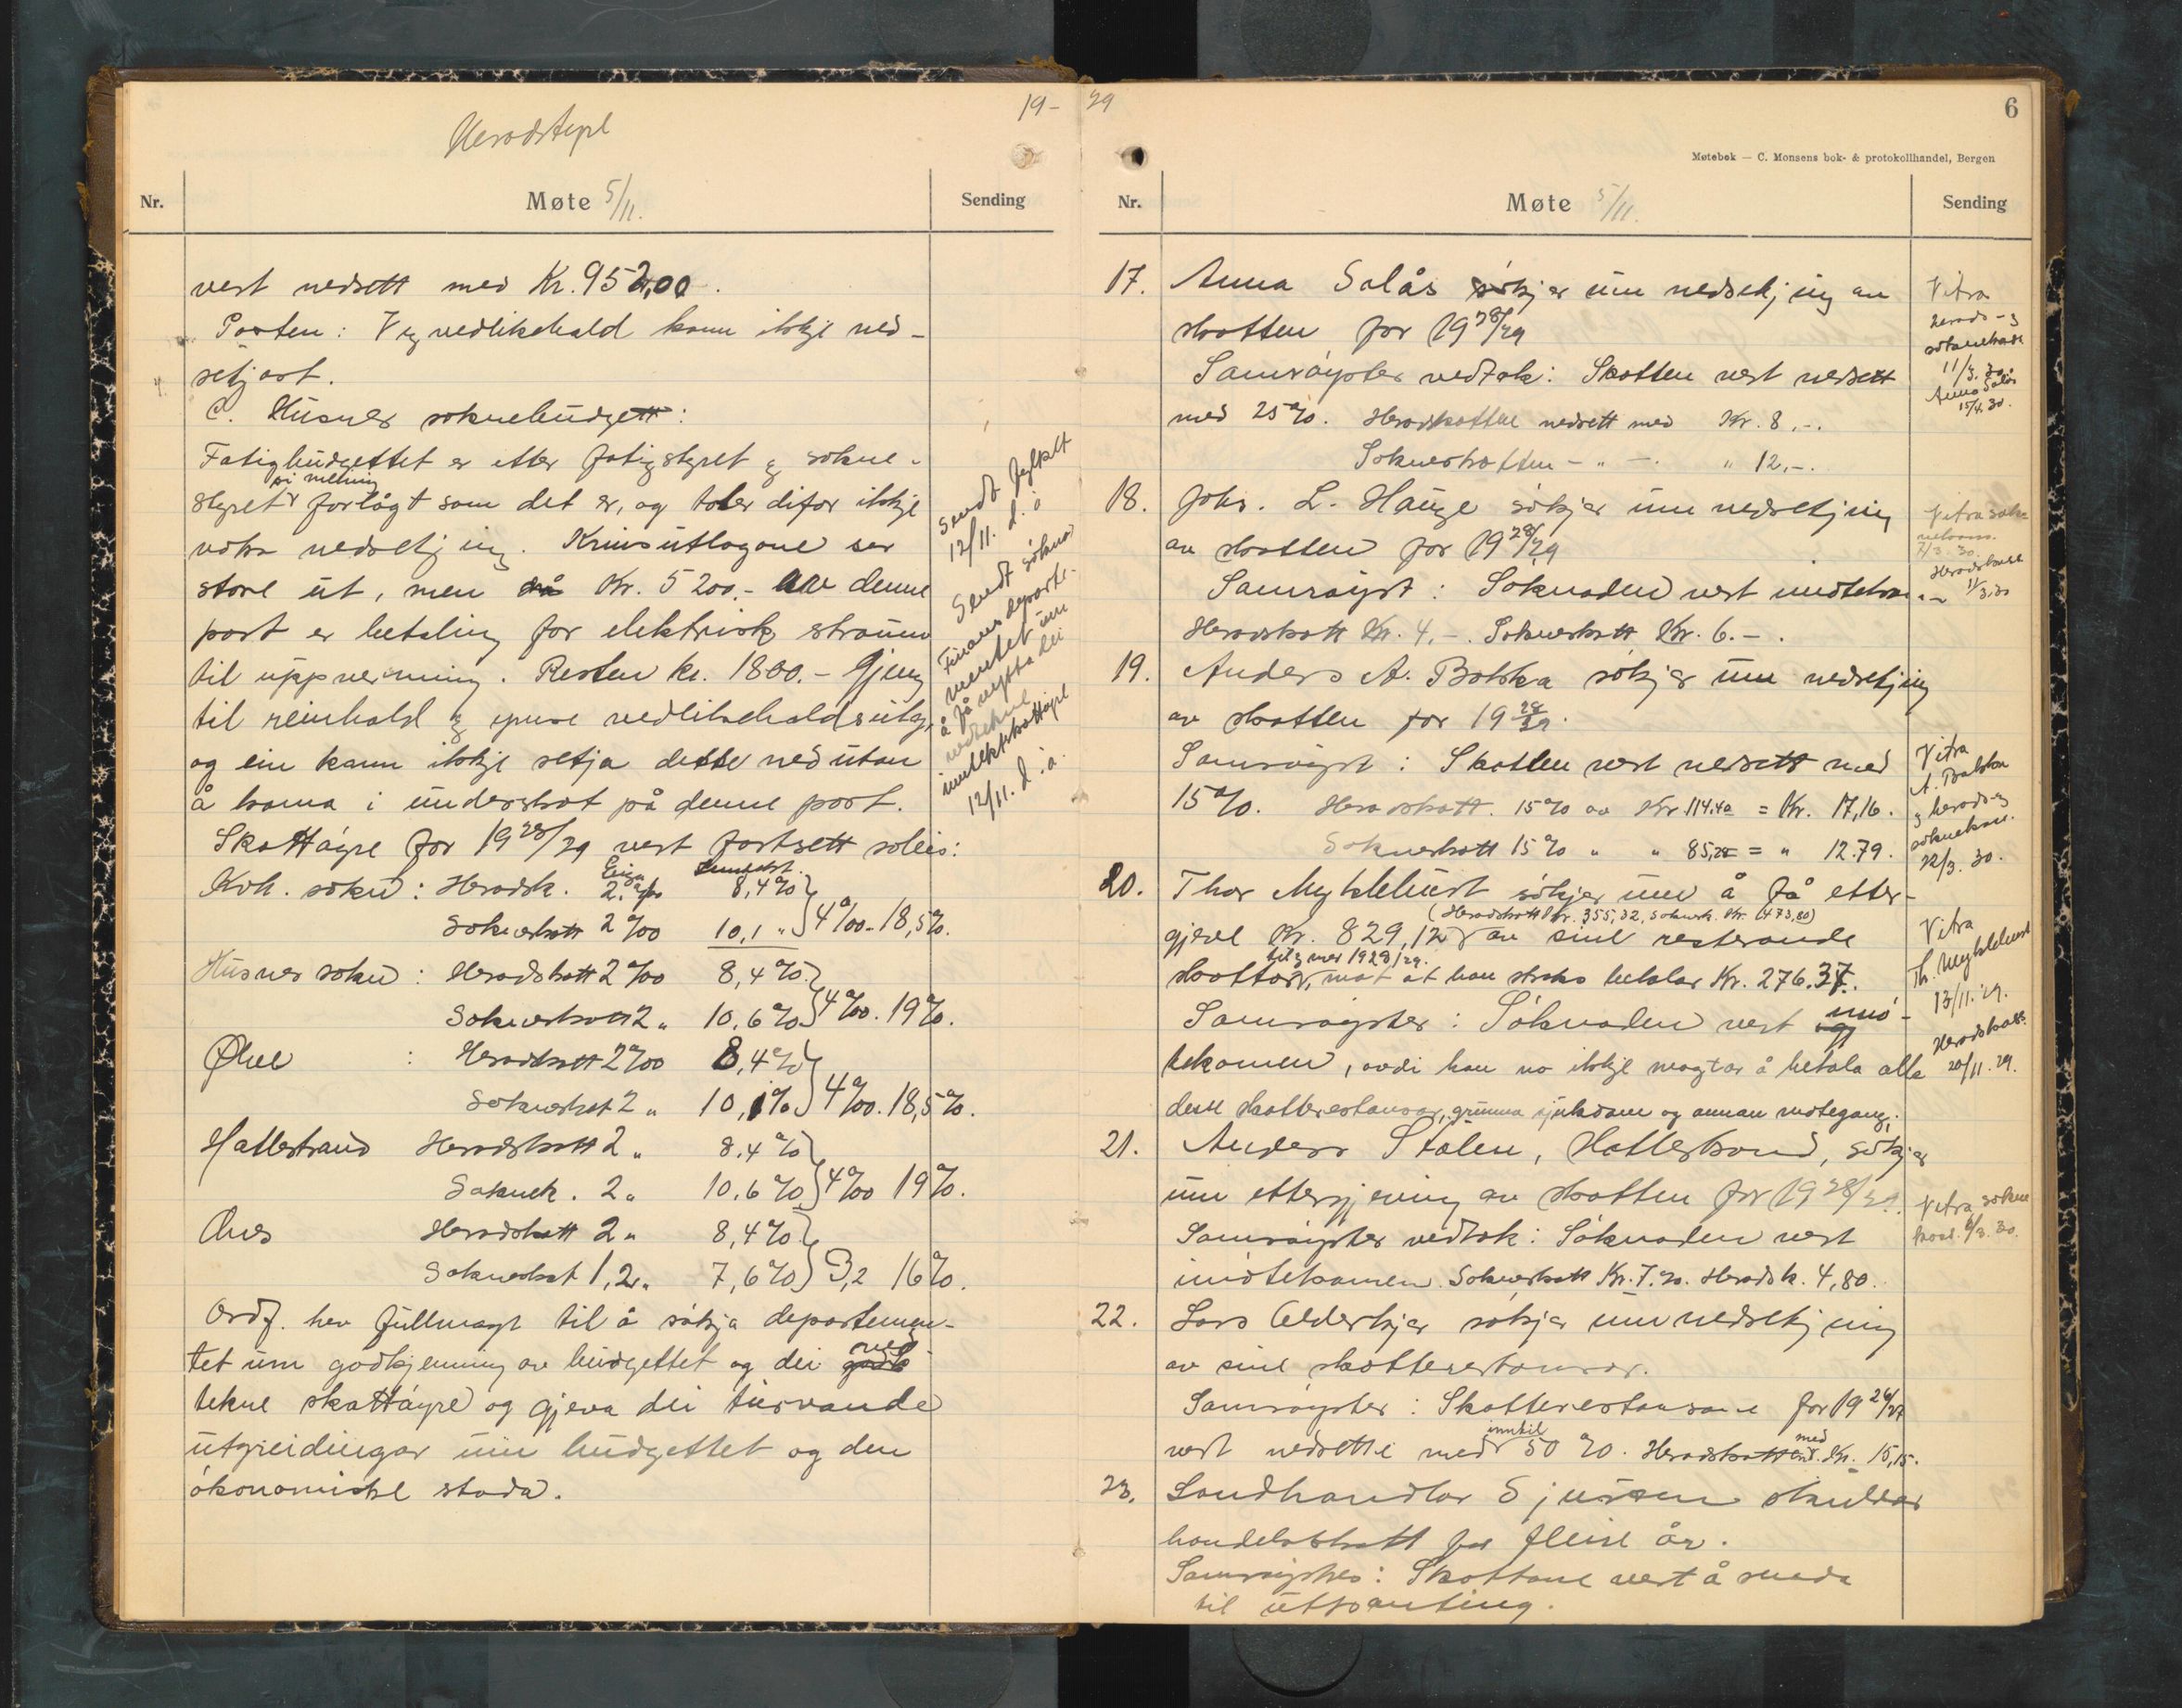 19- 29
Heradstyre
Nr.
Møte 5/11.
Sending
vert nedsett med Kr. 952,00.
Posten: Vegvedlikehald kann ikkje ned-
setjast.
C. Husnes soknebudgett:
Fatigbudgettet er etter fatigstyret og sokne-
styret si meining forlågt som det er, og toler difor ikkje
noka nedsetjing. Krinsutlogone ser
store ut, men Kr. 5200.- av denne
post er betaling for elektrisk straum
til uppverming. Resten kr. 1800.- gjeng
til reinhald og ymse vedlikehaldsutlog,
og ein kann ikkje setja dette ned utan
å koma i underskot på denne post.
Skattøyre for 1928/29 vert fastsett soleis:
Eign
Kvh. sokn: Heradsk. 2 ‰ 8,4 %
Sokneskatt 2 ‰ 10,1 " 4 ‰ - 18,5 %.
Husnes sokn: Heradskatt 2 ‰ 8,4 %
Sokneskatt 2 " 10.6 % 4 ‰. 19 %.
Ølve : Heradskatt 2 ‰ 8,4 %
Sokneskat 2 " 10,1 % 4 ‰. 18,5 %.
Hatlestrand Heradskatt 2 " 8.4 %
Soknesk. 2 " 10.6 % 4 ‰ 19 %.
Ænes Heradskatt 2 " 8,4 %
Sokneskat 1,2 " 7,6 % 3,2 16 %.
Ordf. hev fullmagt til å søkja departemen-
tet um godkjenning av budgettet og dei ved-
tekne skattøyre og gjeva dei turvande
utgreidingar um budgettet og den
økonomiske stoda.
Sendt fylket
12/11. d.å
Sendt søknad
Finansdeparte-
mentet um
å få nytta dei
vedtekne
inntektskattøyre
12/11. d.å.
6
Møtebok — C. Monsens bok- & protokollhandel, Bergen
Nr.
Møte 5/11.
Sending
17. Anna Solås søkjer um nedsetjing av
skatten for 1928/29
Samrøystes vedtak: Skatten vert nedsett
med 25 %. Heradskatten nedsett med Kr. 8,-.
Sokneskatten - " -. " 12,-.
Vitra
herads- og
soknekass
11/3. 30.
Anna Solås
15/4. 30.
18. Johs. L. Hauge søkjer um nedsetjing
av skatten for 1928/29
Samrøyst: Søknaden vert imøtekomen.
Heradskatt Kr. 4,-. Sokneskatt Kr. 6.-.
Vitra sokne
7/3. 30.
Heradskass
11/3.30
19. Anders A. Bakka søkjer um nedsetjing
av skatten for 1928/29.
Samrøyst: Skatten vert nedsett med
15 %. Heradskatt. 15 % av Kr. 114.40 = Kr. 17,16.
Sokneskatt 15 % " " 85,25 = " 12.79.
Vitra
A. Bakka
og herads- og
soknekass.
22/3. 30.
20. Thor Myklebust søkjer um å få etter-
(Heradskatt Kr. 355,32, soknesk. Kr. 473,80)
gjeve Kr. 829,12 av sine resterande
til og med 1928/29.
skattar, mot at han straks betalar Kr. 276.37.
Samrøystes: Søknaden vert imø-
tekomen, avdi han no ikkje magtar å betala alle
desse skatterestansar, grunna sjukdom og annan motegang.
Vitra
Th. Myklebust
13/11. 29.
Heradskass.
20/11. 29.
21. Anders Stølen, Hatlestrand, søkjer
um ettergjeving av skatten for 1928/29.
Samrøystes vedtok: Søknaden vert
imøtekomen. Sokneskatt Kr. 7.20. Heradsk. 4,80.
Vitra sokne
kass. 6/3. 30.
22. Lars Olderkjær søkjer um nedsetjing
av sine skatterestansar.
Samrøystes: Skatterestansane for 1926/27
vert nedsette med inntil 50 %. Heradskatten med Kr. 15,15.
23. Landhandlar Sjursen skuldar
handelsskatt for fleire år.
Samrøystes: Skattane vert å senda
til utpanting.